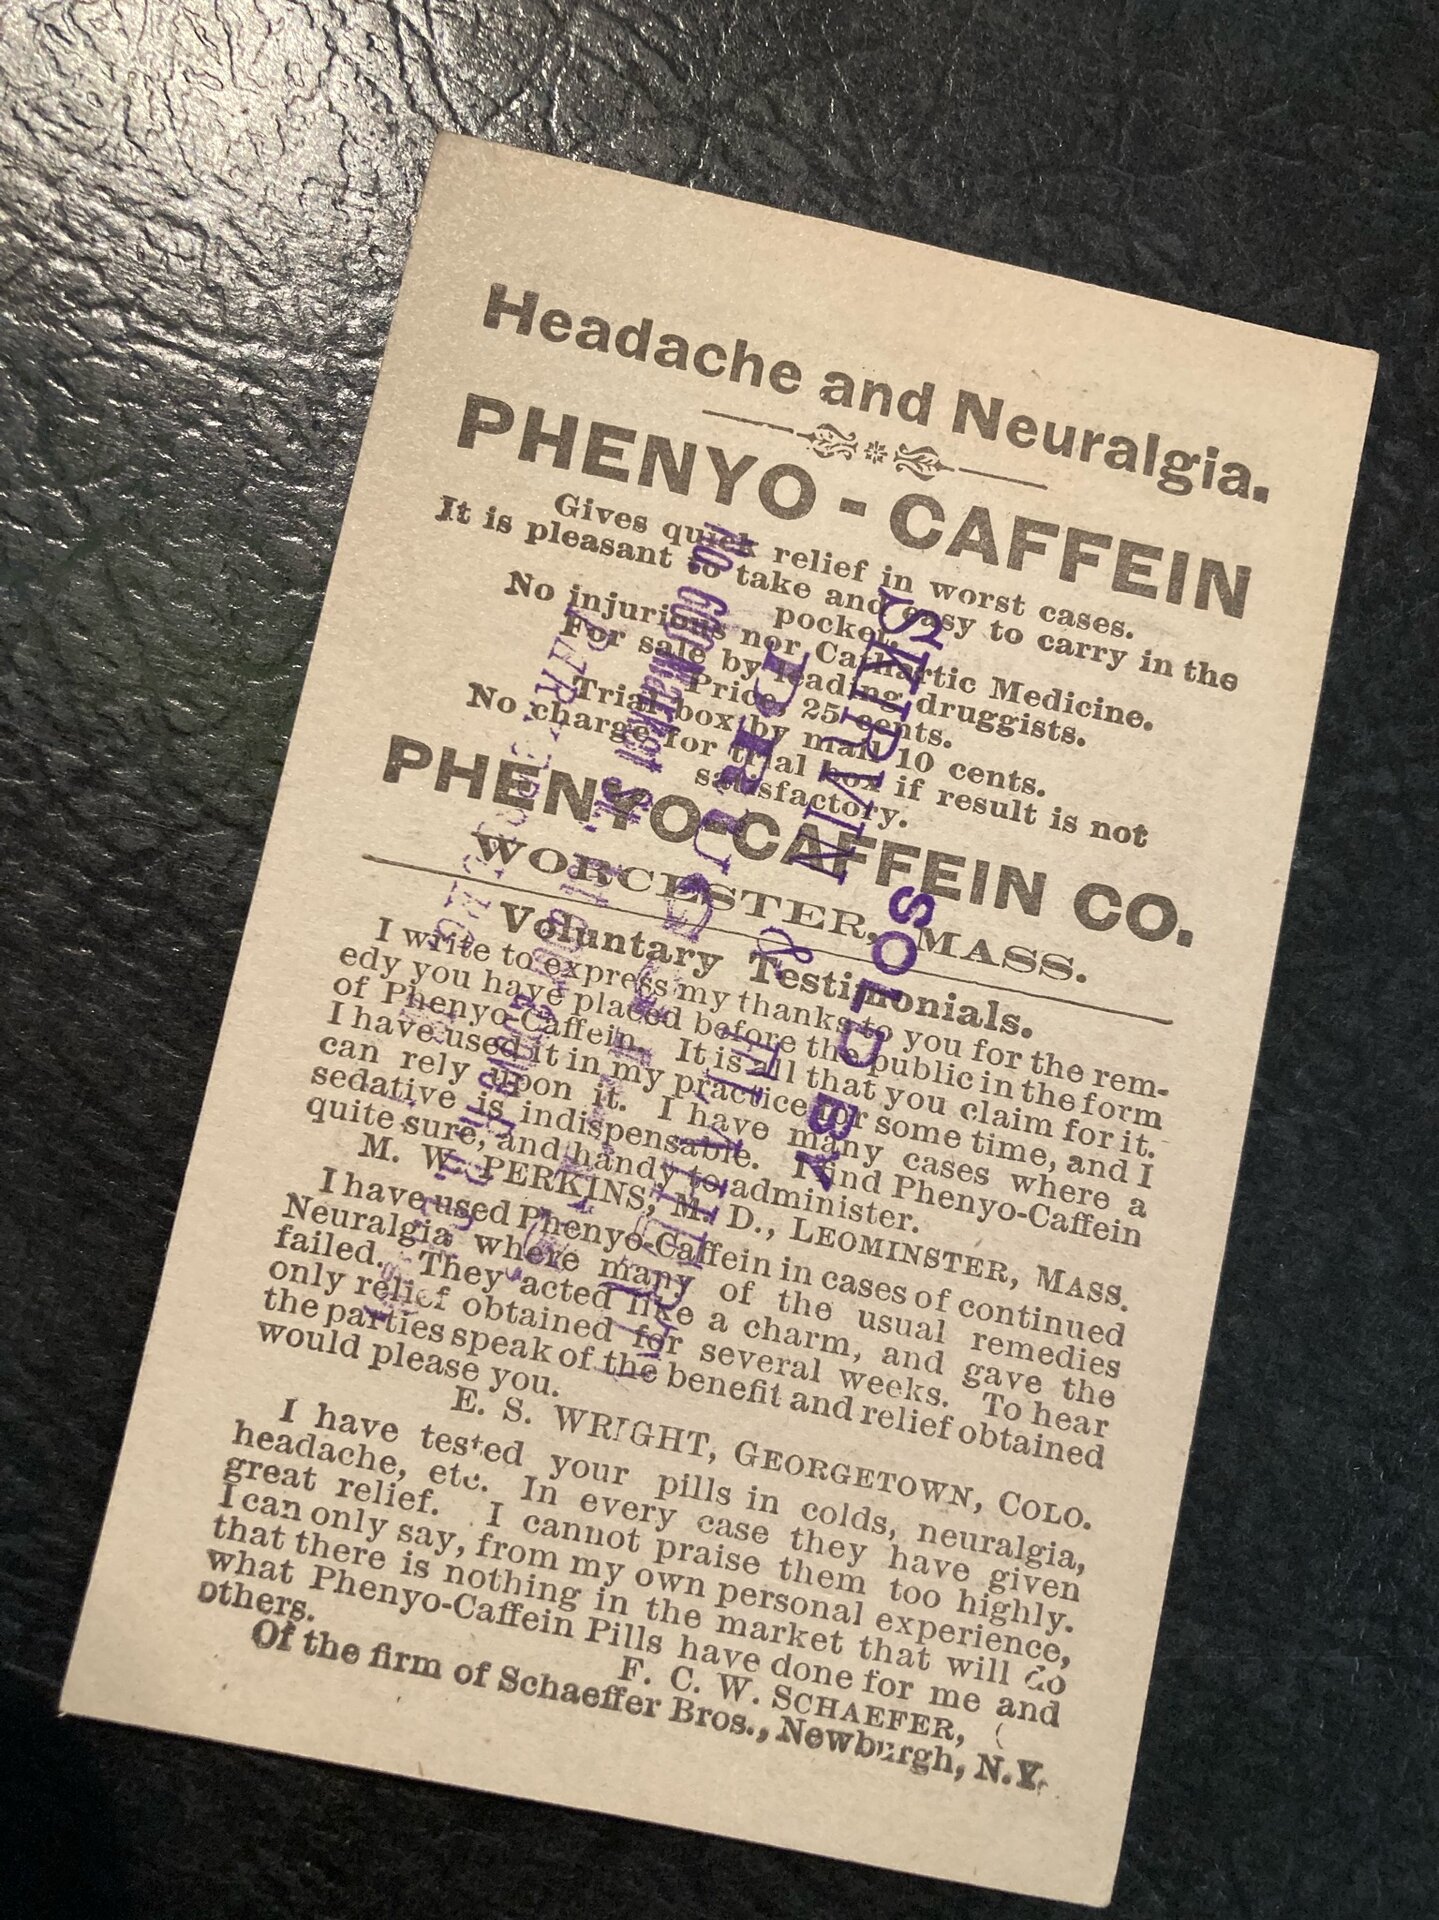 Headache and Neuralgia.
PHENYO-CAFFEIN
Gives quick relief in worst cases.
It is pleasant to take and easy to carry in the
pocket.
No injurious nor Cathartic Medicine.
For sale by leading druggists.
Price, 25 cents.
Trial box by mail 10 cents.
No charge for trial box if result is not
satisfactory.
PHENYO-CAFFEIN CO.
WORCESTER, MASS.
Voluntary Testimonials.
I write to express my thanks to you for the rem-
edy you have placed before the public in the form
of Phenyo-Caffein. It is all that you claim for it.
I have used it in my practice for some time, and I
can rely upon it. I have many cases where a
sedative is indispensable. I find Phenyo-Caffein
quite sure, and handy to administer.
M. W. PERKINS, M. D., LEOMINSTER, MASS.
I have used Phenyo-Caffein in cases of continued
Neuralgia where many of the usual remedies
failed. They acted like a charm, and gave the
only relief obtained for several weeks. To hear
the parties speak of the benefit and relief obtained
would please you.
E. S. WRIGHT, GEORGETOWN, COLO.
I have tested your pills in colds, neuralgia,
headache, etc. In every case they have given
great relief. I cannot praise them too highly.
I can only say, from my own personal experience,
that there is nothing in the market that will do
what Phenyo-Caffein Pills have done for me and
others.
F. C. W. SCHAEFER,
Of the firm of Schaeffer Bros., Newburgh, N.Y.
SOLD BY
SKIRVIN &
DRUG
No. 609 Market St.